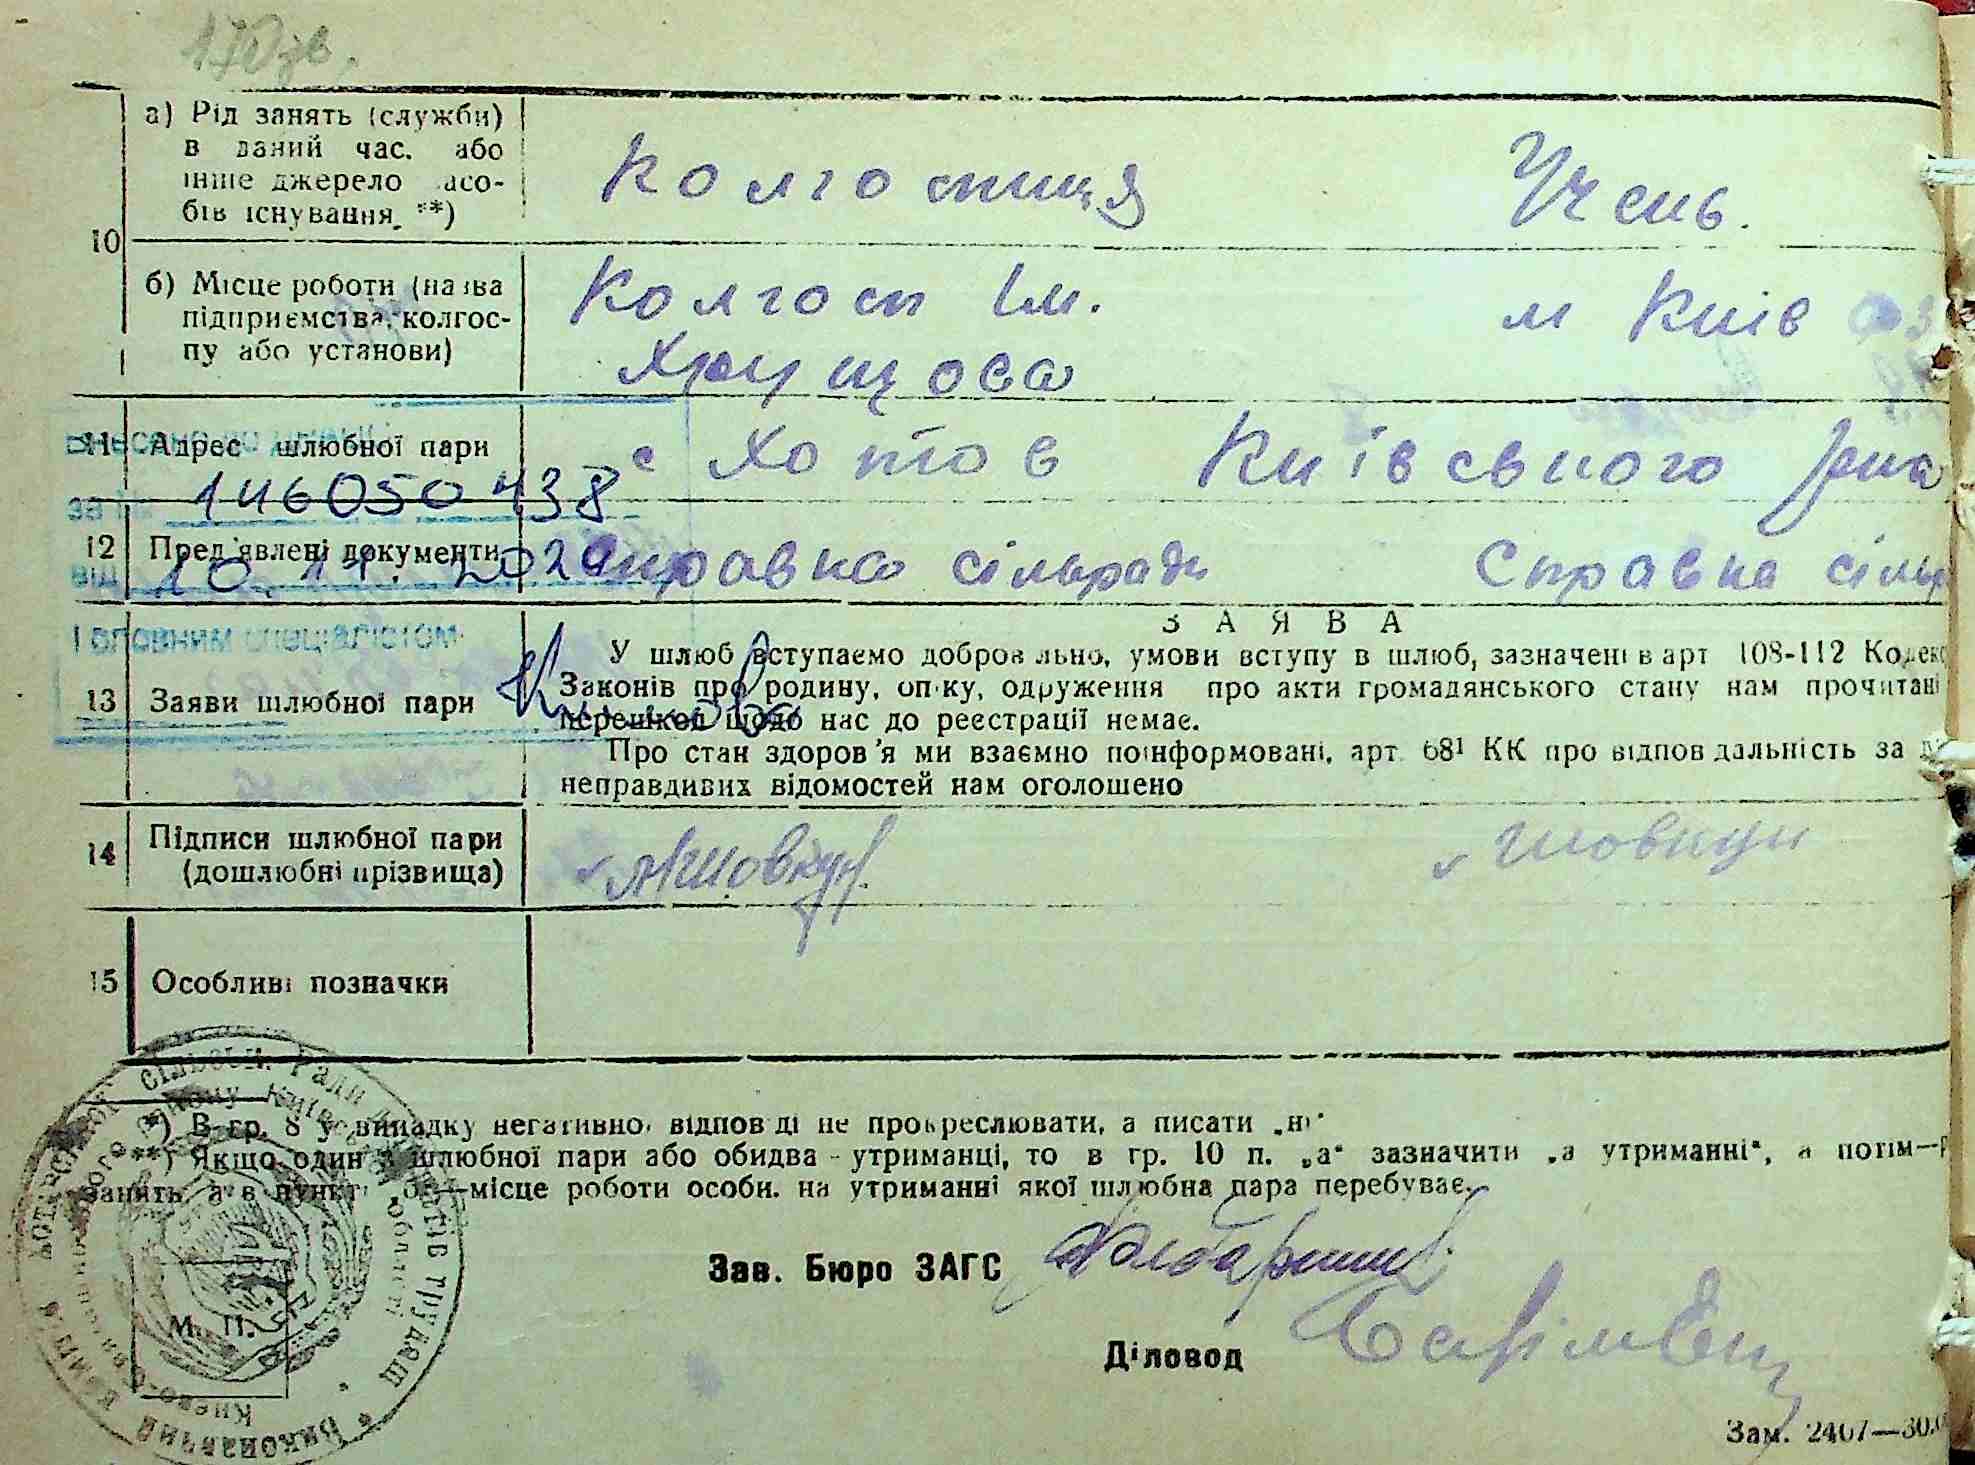 170 зв.
а) Рід занять (служби)
в даний час. або
інше джерело засо-
бів існування **)
Колгоспниця Учень.
10
б) Місце роботи (назва
підприємства, колгос-
пу або установи)
Колгосп Ім. м Київ
Хрущова
11 Адрес шлюбної пари
с Хотов Київського р-на
за № 146050438
12 Пред'явлені документи
Справка сільради Справка сіль
від 10. 11. 202
Головним спеціалістом
ЗАЯВА
13 Заяви шлюбної пари
У шлюб вступаємо добров льно, умови вступу в шлюб, зазначені в арт 108-112 Кодекс
Законів про родину, опіку, одруження про акти громадянського стану нам прочитані
перешкод щодо нас до реестрації немає.
Про стан здоров'я ми взаємно поінформовані, арт. 68¹ КК про відпов дальність за
неправдивих відомостей нам оголошено
14 Підписи шлюбної пари
(дошлюбні прізвища)
Шовкун
15 Особливі позначки
*) В гр. 8 у випадку негативної відпов ді не прокреслювати, а писати „ні"
**) Якщо один з шлюбної пари або обидва - утриманці, то в гр. 10 п. „а" зазначити „а утриманні", а потім—р
занять, а в пункті „б"—місце роботи особи. на утриманні якої шлюбна пара перебуває.
Зав. Бюро ЗАГС
Діловод
М. П.
Зам. 2407—30.